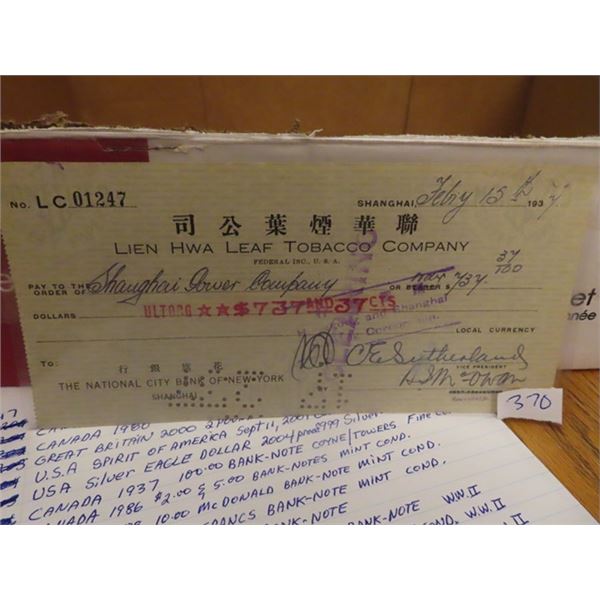 No. LC 01247
SHANGHAI, Feb'y 15th 1937.
司公葉煙華聯
LIEN HWA LEAF TOBACCO COMPANY
FEDERAL INC., U. S. A.
PAY TO THE ORDER OF Shanghai Power Company OR BEARER $ 737. 37/100
DOLLARS ULTORG ★★$737AND37CTS
and Shanghai
LOCAL CURRENCY
TO: 行銀旗花
THE NATIONAL CITY BANK OF NEW YORK
SHANGHAI
C E Sutherland
VICE PRESIDENT
370
et
année
CANADA 1980
GREAT BRITAIN 2000
U.S.A SPIRIT OF AMERICA Sept 11, 2001
USA Silver EAGLE DOLLAR 2004 proof 999 Silver
CANADA 1937 100.00 BANK-NOTE COYNE/TOWERS Fine
CANADA 1986 $2.00 & 5.00 BANK-NOTES MINT COND.
10.00 McDONALD BANK-NOTE MINT COND.
FRANCS BANK-NOTE
BANK-NOTE W.W.II
COND. W.W.II
II